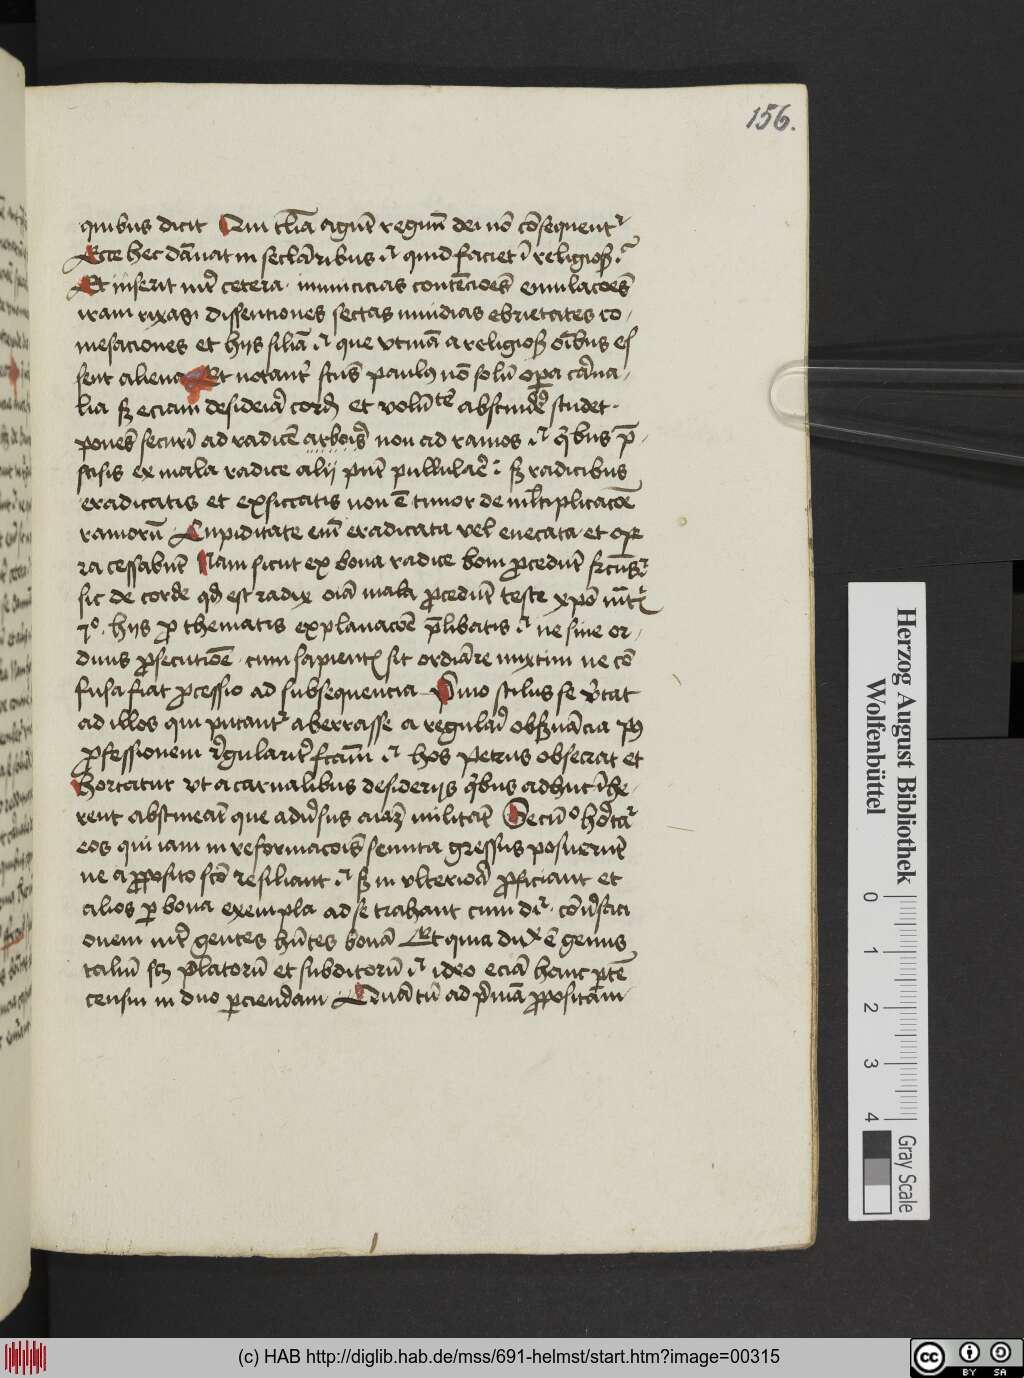 156.
quibus dicit Qui tl̄ia agūt regnū dei nō cōsequent᷑
Ecce hec dānat in seclāribus quid faciet ī religios
Et inserit int̉ cetera inimicicias contēcioēs emulacoēs
iram rixas dissentiones sectas inuidias ebrietates co-
mesaciones et hijs siliā que vtinā a religios oībus es
sent aliena Et notant̉ scūs paulus nō solū opera carna-
lia sed eciam desideria cord et volūtē abscindere studet
ponēs securī ad radicē arbois non ad ramos quibus p̄-
scisis ex mala radice alij pūt pullulare sed radicibus
eradicatis et exsiccatis non ē timor de mltiplicacōe
ramorū Cupiditate enī eradicata vel enecata et ope
ra cessabūt Nam sicut ex bona radice boni procedūt
sic de corde qd est radix oīa mala procedūt teste xpo
hijs pro thematis explanacōe p̄libatis ne sine or-
dinis prosecutiōe cum sapientis sit ordinare mixtim ne cō
fusa fiat processio ad subsequencia Primo stilus se v̉tat
ad illos qui putant᷑ aberrasse a regulari obseruācia
professionem regularit̉ fctām hos petrus obsecrat et
hortatur vt a carnalibus desiderijs quibus adhuc īhe-
rent abstineāt que adủsus aīaz militāt Secūdo hortat᷑
eos qui iam in reformacōis semita gressus posuerūt
ne a proposito scō resiliant sed in vlteriora proficiant et
alios per bona exempla ad se trahant cum dr cōủsaci
onem int̉ gentes hn̄tes bonā Et quia duplex ē genus
taliū scz prelatorū et subditorū ideo eciā hanc p̄tē
censui in duo perciendam Quātū ad primā propositam
Herzog August Bibliothek
Wolfenbüttel
0
1
2
3
4
Gray Scale
(c) HAB http://diglib.hab.de/mss/691-helmst/start.htm?image=00315
cc
BY SA